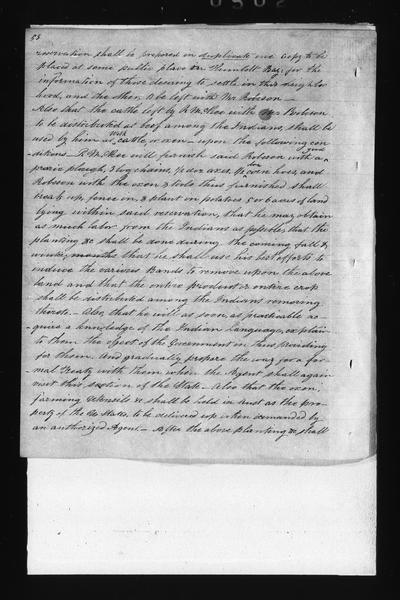 53
reservation shall be prepared in duplicate one copy to be
placed at some public place on Humbolt Bay: for the
information of those desiring to settle in this neighbor
hood, and the other to be left with Mr Robson—
Also that the cattle left by R McKee with Mr Robson
to be distributed as beef among the Indians, shall be
used by him as work cattle, or oxen— upon the following con
ditions— R McKee will furnish said Robson with a good
prarie plough, 3 log chains, ½ doz axes, ½ doz corn hoes, and
Robson with the oxen & tools thus furnished shall
break up, fence in, & plant in potatoes 5 or 6 acres of land
lying within said reservation, that he may obtain
as much labor from the Indians as possible, that the
planting &c shall be done during the coming fall &
winter, months that he shall use his best efforts to
induce the various Bands to remove upon the above
land and that the entire product or entire crop
shall be distributed among the Indians removing
thereto— Also, that he will as soon, as practicable ac-
quire a knowledge of the Indian Language, explain
to them the object of the Government in thus providing
for them. And gradually prepare the way for a for-
mal Treaty with them when the Agent shall again
visit this section of the State— Also that the oxen,
farming utensils &c shall be held in trust as the pro-
perty of the U States, to be delivered up when demanded by
an authorized Agent— After the above planting &c shall